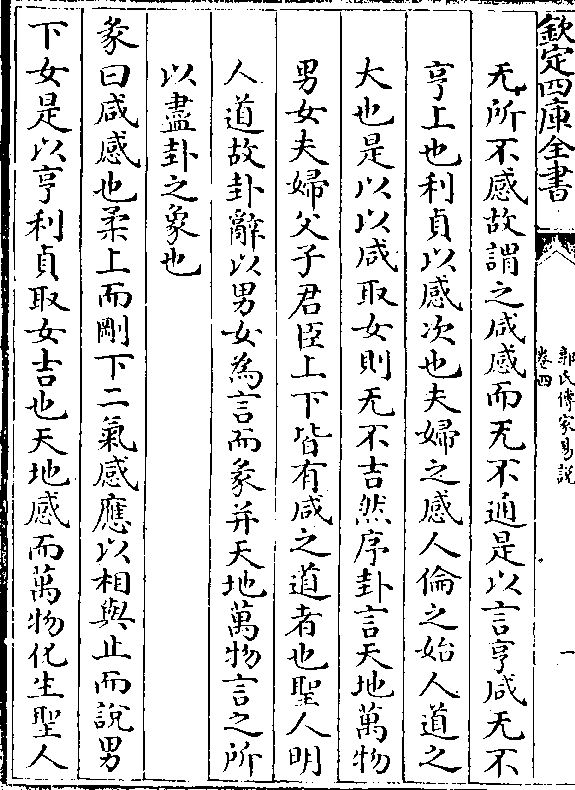 欽定四庫全書
郭氏傳家易說
卷四
一
无所不感故謂之咸感而无不通是以言亨咸无不
亨上也利貞以感次也夫婦之感人倫之始人道之
大也是以以咸取女則无不吉然序卦言天地萬物
男女夫婦父子君臣上下皆有咸之道者也聖人明
人道故卦辭以男女為言而彖并天地萬物言之所
以盡卦之象也
彖曰咸感也柔上而剛下二氣感應以相與止而說男
下女是以亨利貞取女吉也天地感而萬物化生聖人